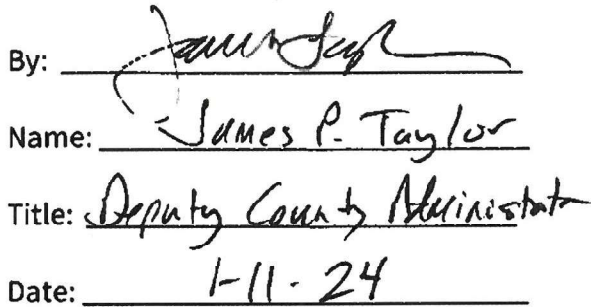 By:
Name: James P. Taylor
Title: Deputy County Administrator
Date: 1-11-24